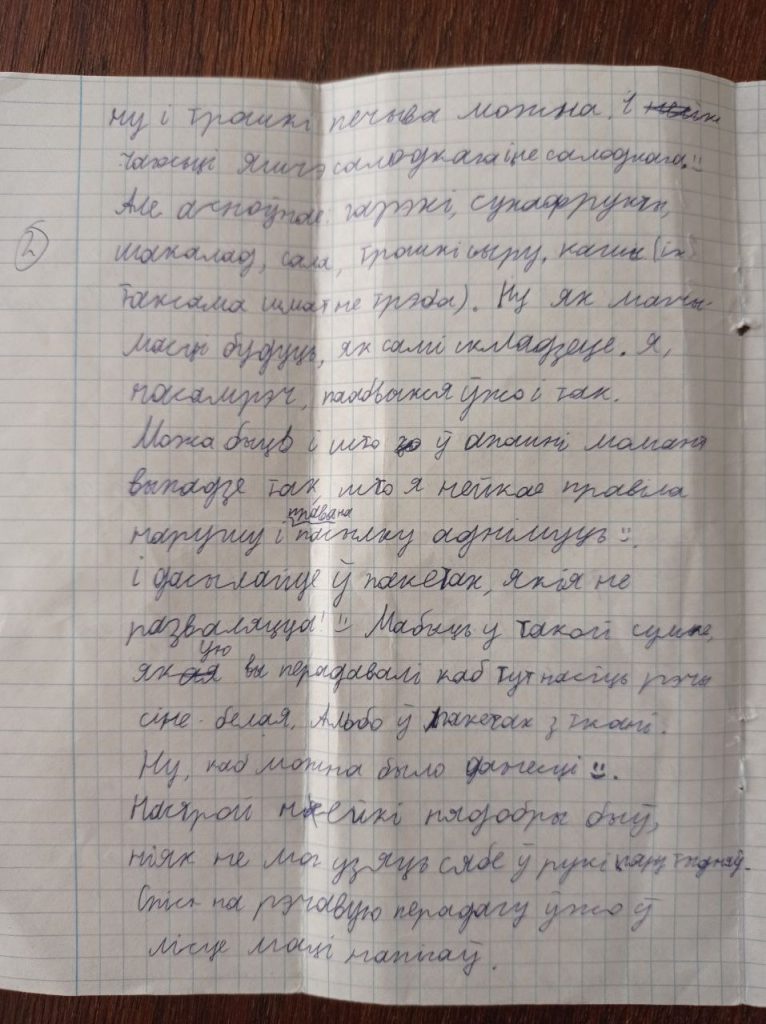 ну і трошкі печыва можна. І
часьці яшчэ салодкага і не салодкага. :)
Але асноўнае: гарэхі, сухафрукты,
2
шакалад, сала, трошкі сыру, кашы (іх
таксама шмат не трэба). Ну як магчы-
масць будуць, як самі складзеце. Я,
насамрэч, паабвыкся ўжо і так.
Можа быць і што ў апошні момант
выпадзе так, што я нейкае правіла
нарушу і права на пасылку аднімуць :).
і дасылайце ў пакетах, якія не
разваляцца! :) Мабыць у такой сумке,
якую вы перадавалі каб тут насіць рэчы
сіне-белая. Альбо ў пакетах з ткані.
Ну, каб можна было данесці :).
Настрой нейкі нядобры быў,
ніяк не мог узяць сябе ў рукі пару тыдняў.
Спіс на рэчавую перадачу ўжо ў
лісце маці напісаў.